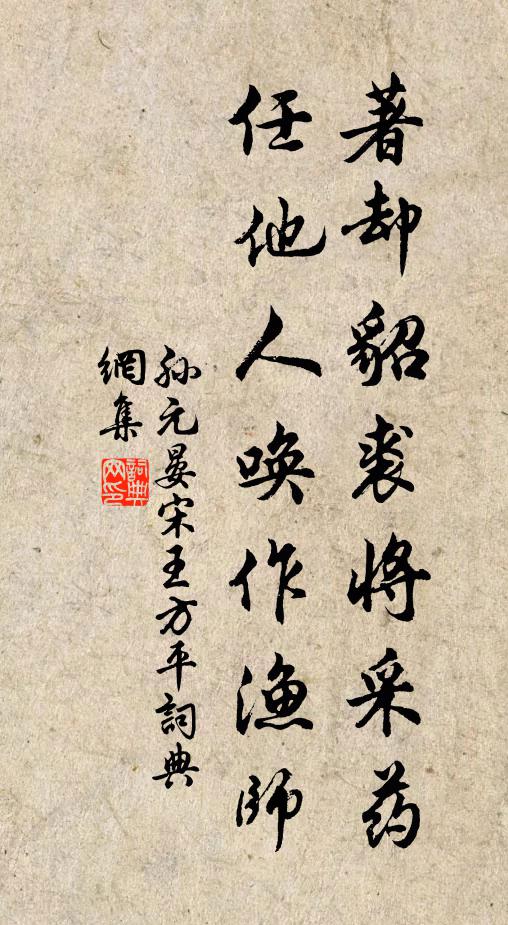 著却貂裘将采药
任他人唤作渔師
孙元晏宋王方平詞典
網集
詞典网印